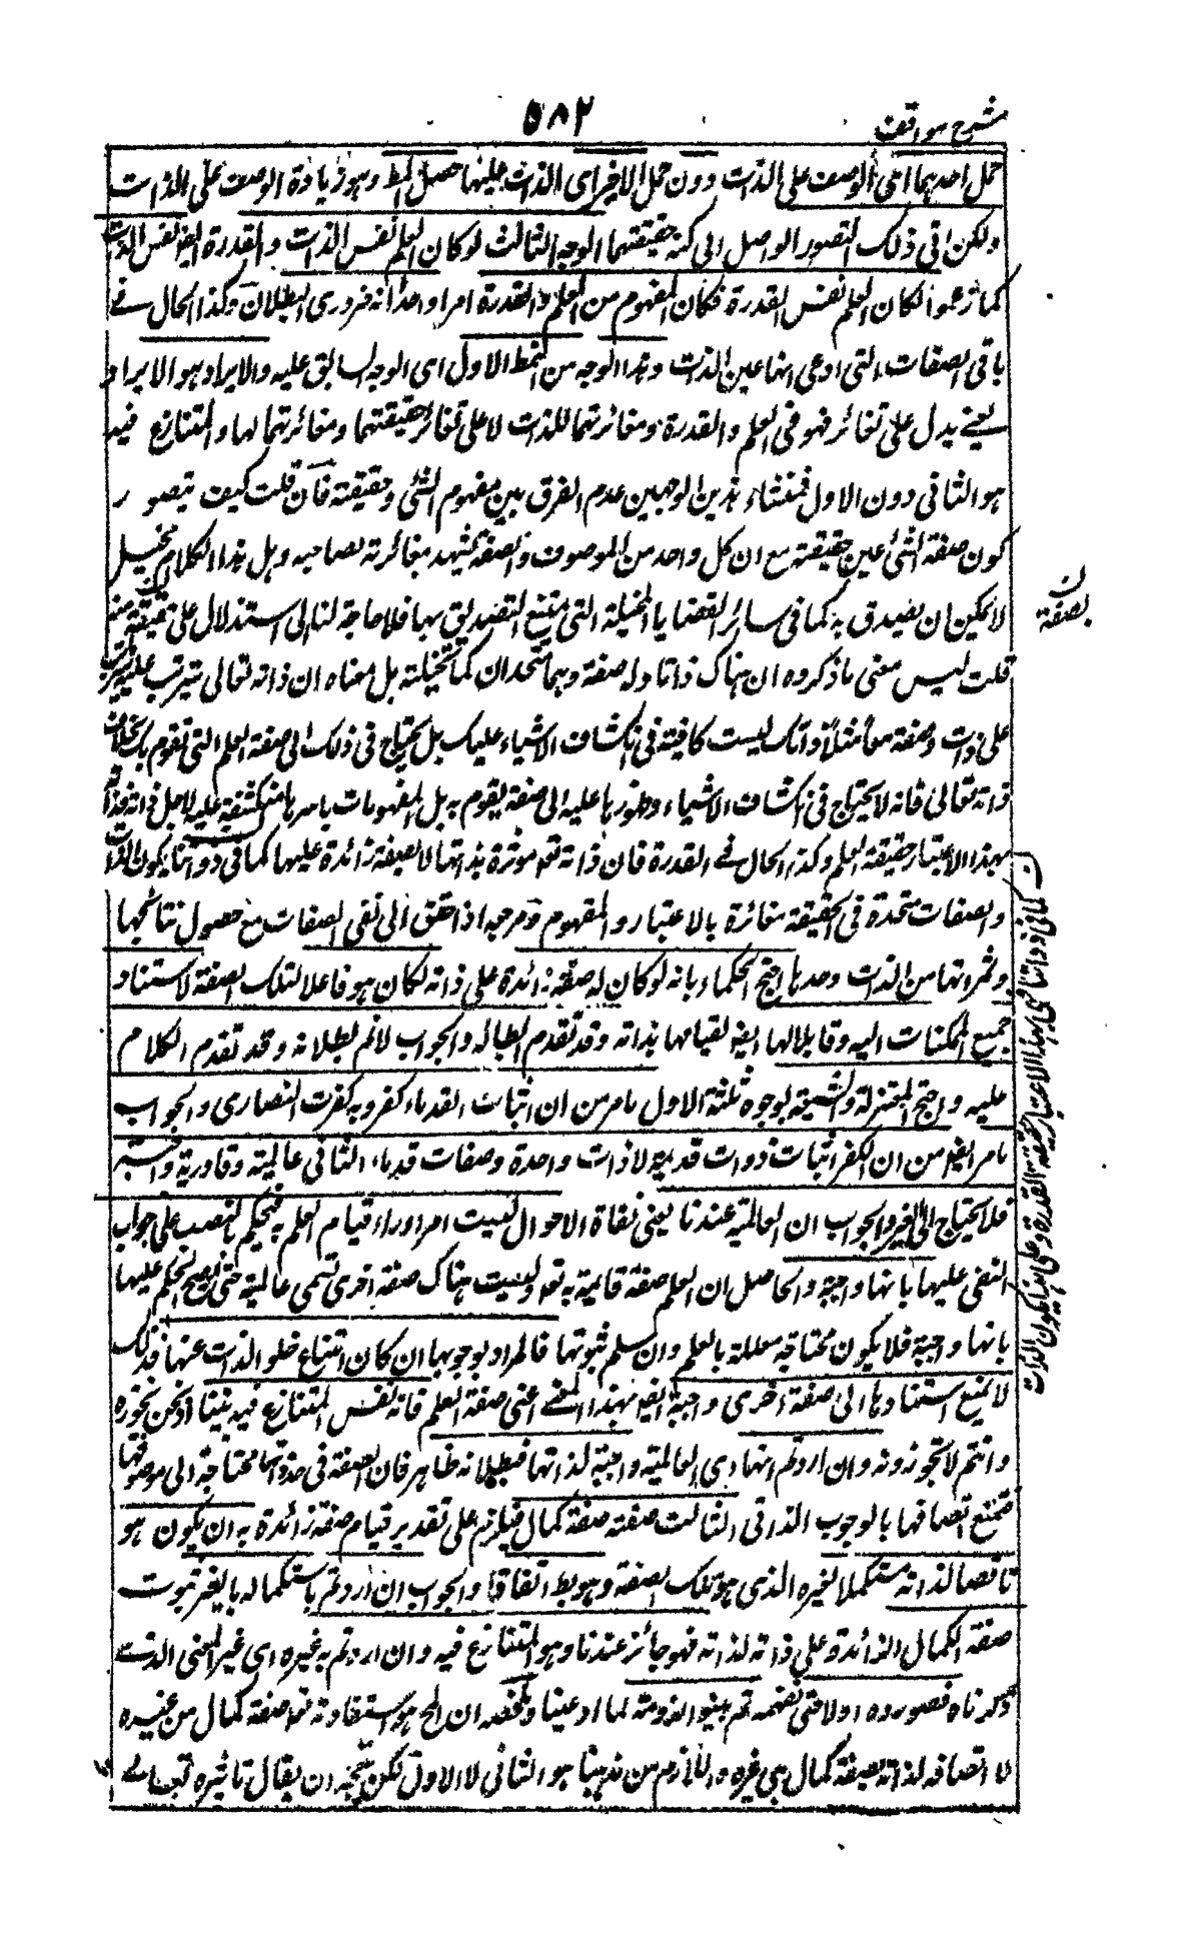 شرح مواقف
٥٨٢
حمل احدهما اعنى الوصف على الذات دون حمل الاخر اى الذات عليها حصل المط وهو زيادة الوصف على الذات
ولكن انى ذلك التصور الواصل الى كنه حقيقتهما الوجه الثالث لو كان العلم نفس الذات والقدرة ايضا نفس الذات
كما زعموا لكان العلم نفس القدرة فكان المفهوم من العلم والقدرة امرا واحدا انه ضرورى البطلان وكذا الحال فے
باقى الصفات التى ادعى انها عين الذات وهذا الوجه من النمط الاول اى الوجه السابق عليه والايراد هو الايراد
يعنے يدل على تغائر مفهومى العلم والقدرة ومغائرتهما للذات لا على تغائر حقيقتهما ومغائرتهما لها والمتنازع فيه
هو الثانى دون الاول فمنشاء هذين الوجهين عدم الفرق بين مفهوم الشئ وحقيقته فان قلت كيف يتصور
كون صفة الشئ عين حقيقته مع ان كل واحد من الموصوف والصفة يشهد بمغائرته لصاحبه وهل هذا الكلام مخيل
لا يمكن ان يصدق به كما فى سائر القضايا المخيلة التى يمتنع التصديق بها فلا حاجة لنا الى استدلال على
قلت ليس معنى ما ذكروه ان هناك ذاتا وله صفة وهما متحدان كما تخيلته بل معناه ان ذاته تعالى يترتب عليه ما يترتب
على ذات وصفة معا مثلا ذاتك ليست كافية فى انكشاف الاشياء عليك بل يحتاج فى ذلك الى صفة العلم التى تقوم بك بخلاف
ذاته تعالى فانه لا يحتاج فى انكشاف الاشياء وظهورها عليه الى صفة يقوم به بل المفهومات باسرها منكشفة عليه لاجل ذاته فذاته
بهذا الاعتبار حقيقة العلم وكذا الحال فے القدرة فان ذاته تعم مؤثرة بذاتها لا بصفة زائدة عليها كما فى ذواتنا يكون الذات
والصفات متحدة فى الحقيقة مغائرة بالاعتبار والمفهوم ومرجعه اذا حقق الى نفى الصفات مع حصول نتائجها
وثمرتها من الذات وحدها احتج الحكماء بانه لو كان له صفة زائدة على ذاته لكان هو فاعلا لتلك الصفة لاستناد
جميع الممكنات اليه وقابلا لها ايضا لقيامها بذاته وقد تقدم بطلانه والجواب لانم بطلانه وقد تقدم الكلام
عليه واحتج المعتزلة والشيعة بوجوه ثلثة الاول مامر من ان اثبات القدماء كفر وبه كفرت النصارى والجواب
مامر ايضا من ان الكفر اثبات ذوات قديمة لا ذات واحدة وصفات قدماء الثانى عالمية وقادرية واجبة
فلا يحتاج الى الغير والجواب ان العالمية عندنا يعنى نفاة الاحوال ليست امرا وراء قيام العلم به فيحكم بالنصب على جواب
النفى عليها بانها واجبة والحاصل ان العلم صفة قائمة به تعم وليست هناك صفة اخرى تسمى عالمية حتى يصح الحكم عليها
بانها واجبة فلا يكون محتاجة معللة بالعلم وان سلم ثبوتها فالمراد بوجوبها ان كان امتناع خلو الذات عنها فذلك
لا يمنع استنادها الى صفة اخرى واجبة ايضا بهذا المعنے اعنى صفة العلم فانه نفس المتنازع فيه بيننا اذ نحن نجوزه
وانتم لا تجوزونه وان اردتم انها اى العالمية واجبة لذاتها فبطلانه ظاهر فان الصفة فى حد ذاتها محتاجة الى موصوفها
فيمتنع اتصافها بالوجوب الذاتى الثالث صفته صفة كمال فيلزم على تقدير قيام صفة زائدة به ان يكون هو
ناقصا لذاته مستكملا لغيره الذى هو تلك الصفة وهو بط اتفاقا والجواب ان اردتم باستكماله بالغير ثبوت
صفة الكمال الزائدة على ذاته لذاته فهو جائز عندنا وهو المتنازع فيه وان اردتم به غيره اى غير المعنى الذے
ذكرناه فصوروه اولا حتى نفهمه ثم بينوا لزومه لما ادعينا وملخصه ان المح هو استفادته تعم صفة كمال من غيره
لا اتصافه لذاته بصفة كمال هى غيره واللازم من مذهبنا هو الثانى لا الاول لكن يتجه ان يقال تاثيره تعالے
ن
بصفة